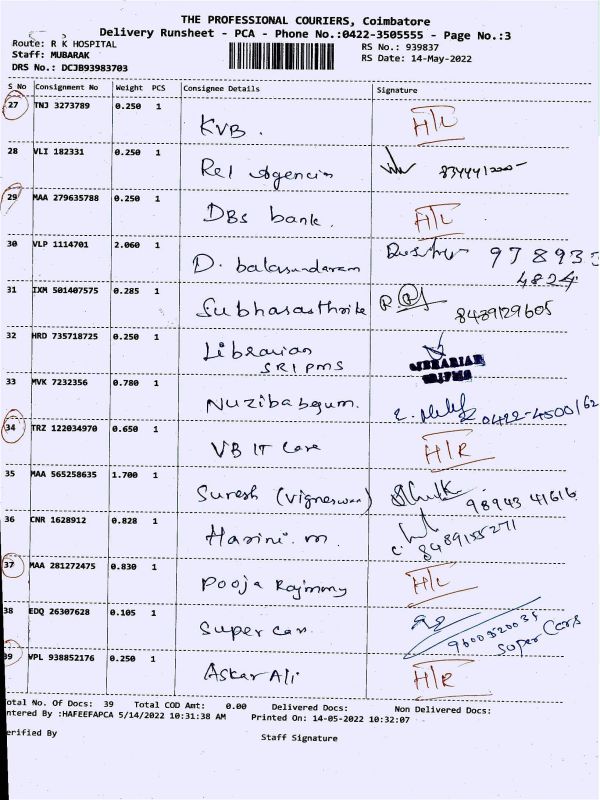 THE PROFESSIONAL COURIERS, Coimbatore
Delivery Runsheet - PCA - Phone No.:0422-3505555 - Page No.:3
Route: R K HOSPITAL
RS No.: 939837
Staff: MUBARAK
RS Date: 14-May-2022
DRS No.: DCJB93983703
S No Consignment No Weight PCS Consignee Details Signature
27 TNJ 3273789 0.250 1
KVB.
28 VLI 182331 0.250 1
Rel Agencies
29 MAA 279635788 0.250 1
DBS bank.
30 VLP 1114701 2.060 1
978933
D. balasundaram 4824
31 IXM 501407575 0.285 1
8489129605
32 HRD 735718725 0.250 1
Librarian
SRIPMS
LIBRARIAN
SRIPMS
33 MVK 7232356 0.780 1
Nuzibabegum. 0422-4500162
34 TRZ 122034970 0.650 1
VB IT Care H/R
35 MAA 565258635 1.700 1
Suresh (Vigneswan) 98943 41616
36 CNR 1628912 0.828 1
Harini. m 8489155271
37 MAA 281272475 0.830 1
Pooja
38 EDQ 26307628 0.105 1
Super car
Super Cars
39 VPL 938852176 0.250 1
Askar Ali H/R
otal No. Of Docs: 39 Total COD Amt: 0.00 Delivered Docs: Non Delivered Docs:
ntered By :HAFEEFAPCA 5/14/2022 10:31:38 AM Printed On: 14-05-2022 10:32:07
erified By Staff Signature